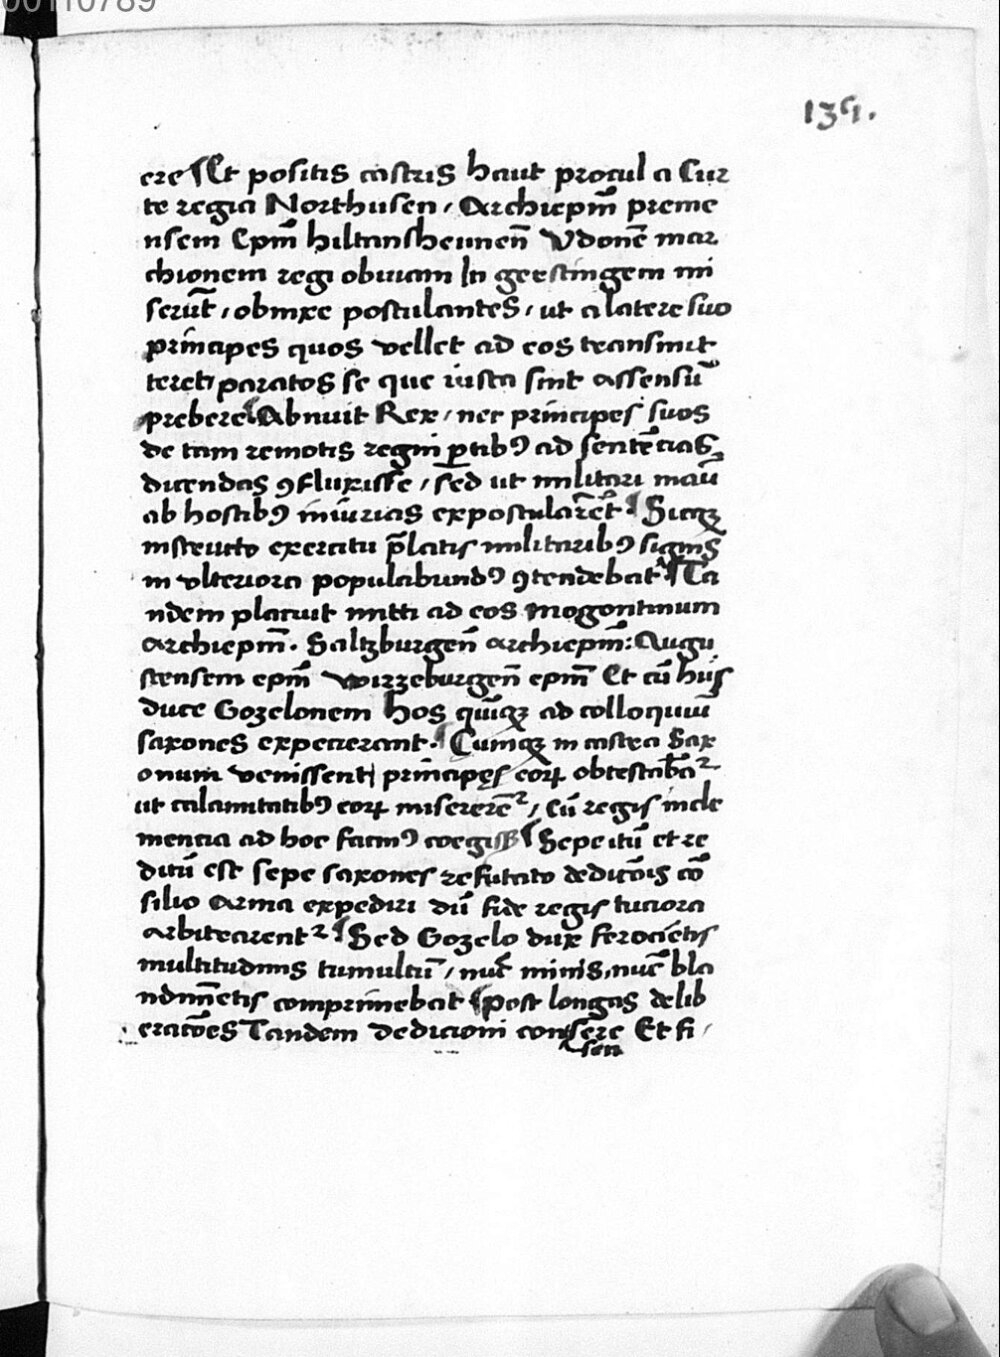 00110789
135.
ere Et positis castris haut procul a Cur
te regia Northusen, Archiepm̄ preme
nsem Epm̄ hiltansheimen̄ Vdonē mar
chionem regi obuiam In gerstingem mi
serūt, obnixe postulantes, ut a latere suo
principes quos vellet ad eos transmit
teret, paratos se que iusta sint assensū
prebere Abnuit Rex, nec principes suos
de tam remotis regni ꝑtibꝯ ad sentēcias
dicendas ꝯfluxisse, sed ut militari manū
ab hostibꝯ iniurias expostularēt. Sicqꝫ
instructo exercitu p̄latis militaribꝯ signis
in vlteriora populabundꝯ ꝯtendebat Ta
ndem placuit mitti ad eos Mogontinum
Archiepm̄. Saltzburgen̄ archiepm̄: Augu
stensem epm̄ wirzeburgen̄ epm̄ Et cū hijs
duce Gozelonem hos quīqꝫ ad colloquiū
saxones expecierant. Cumqꝫ in castra Sax
onum venissent, principes eoꝝ
ut calamitatibꝯ eoꝝ, cū regis incle
mencia ad hoc facinꝯ coegiss Sepe itū et re
ditū est sepe saxones refutato dedicōis cō
silio arma expediri dū fide regis tuciora
arbitrarent᷑ Sed Gozelo dux ferociētis
multitudinis tumultū, nūc minis, nūc bla
ndimētis comprimebat Post longas delib
eracōes Tandem dedicioni consēre Et fi,
sen